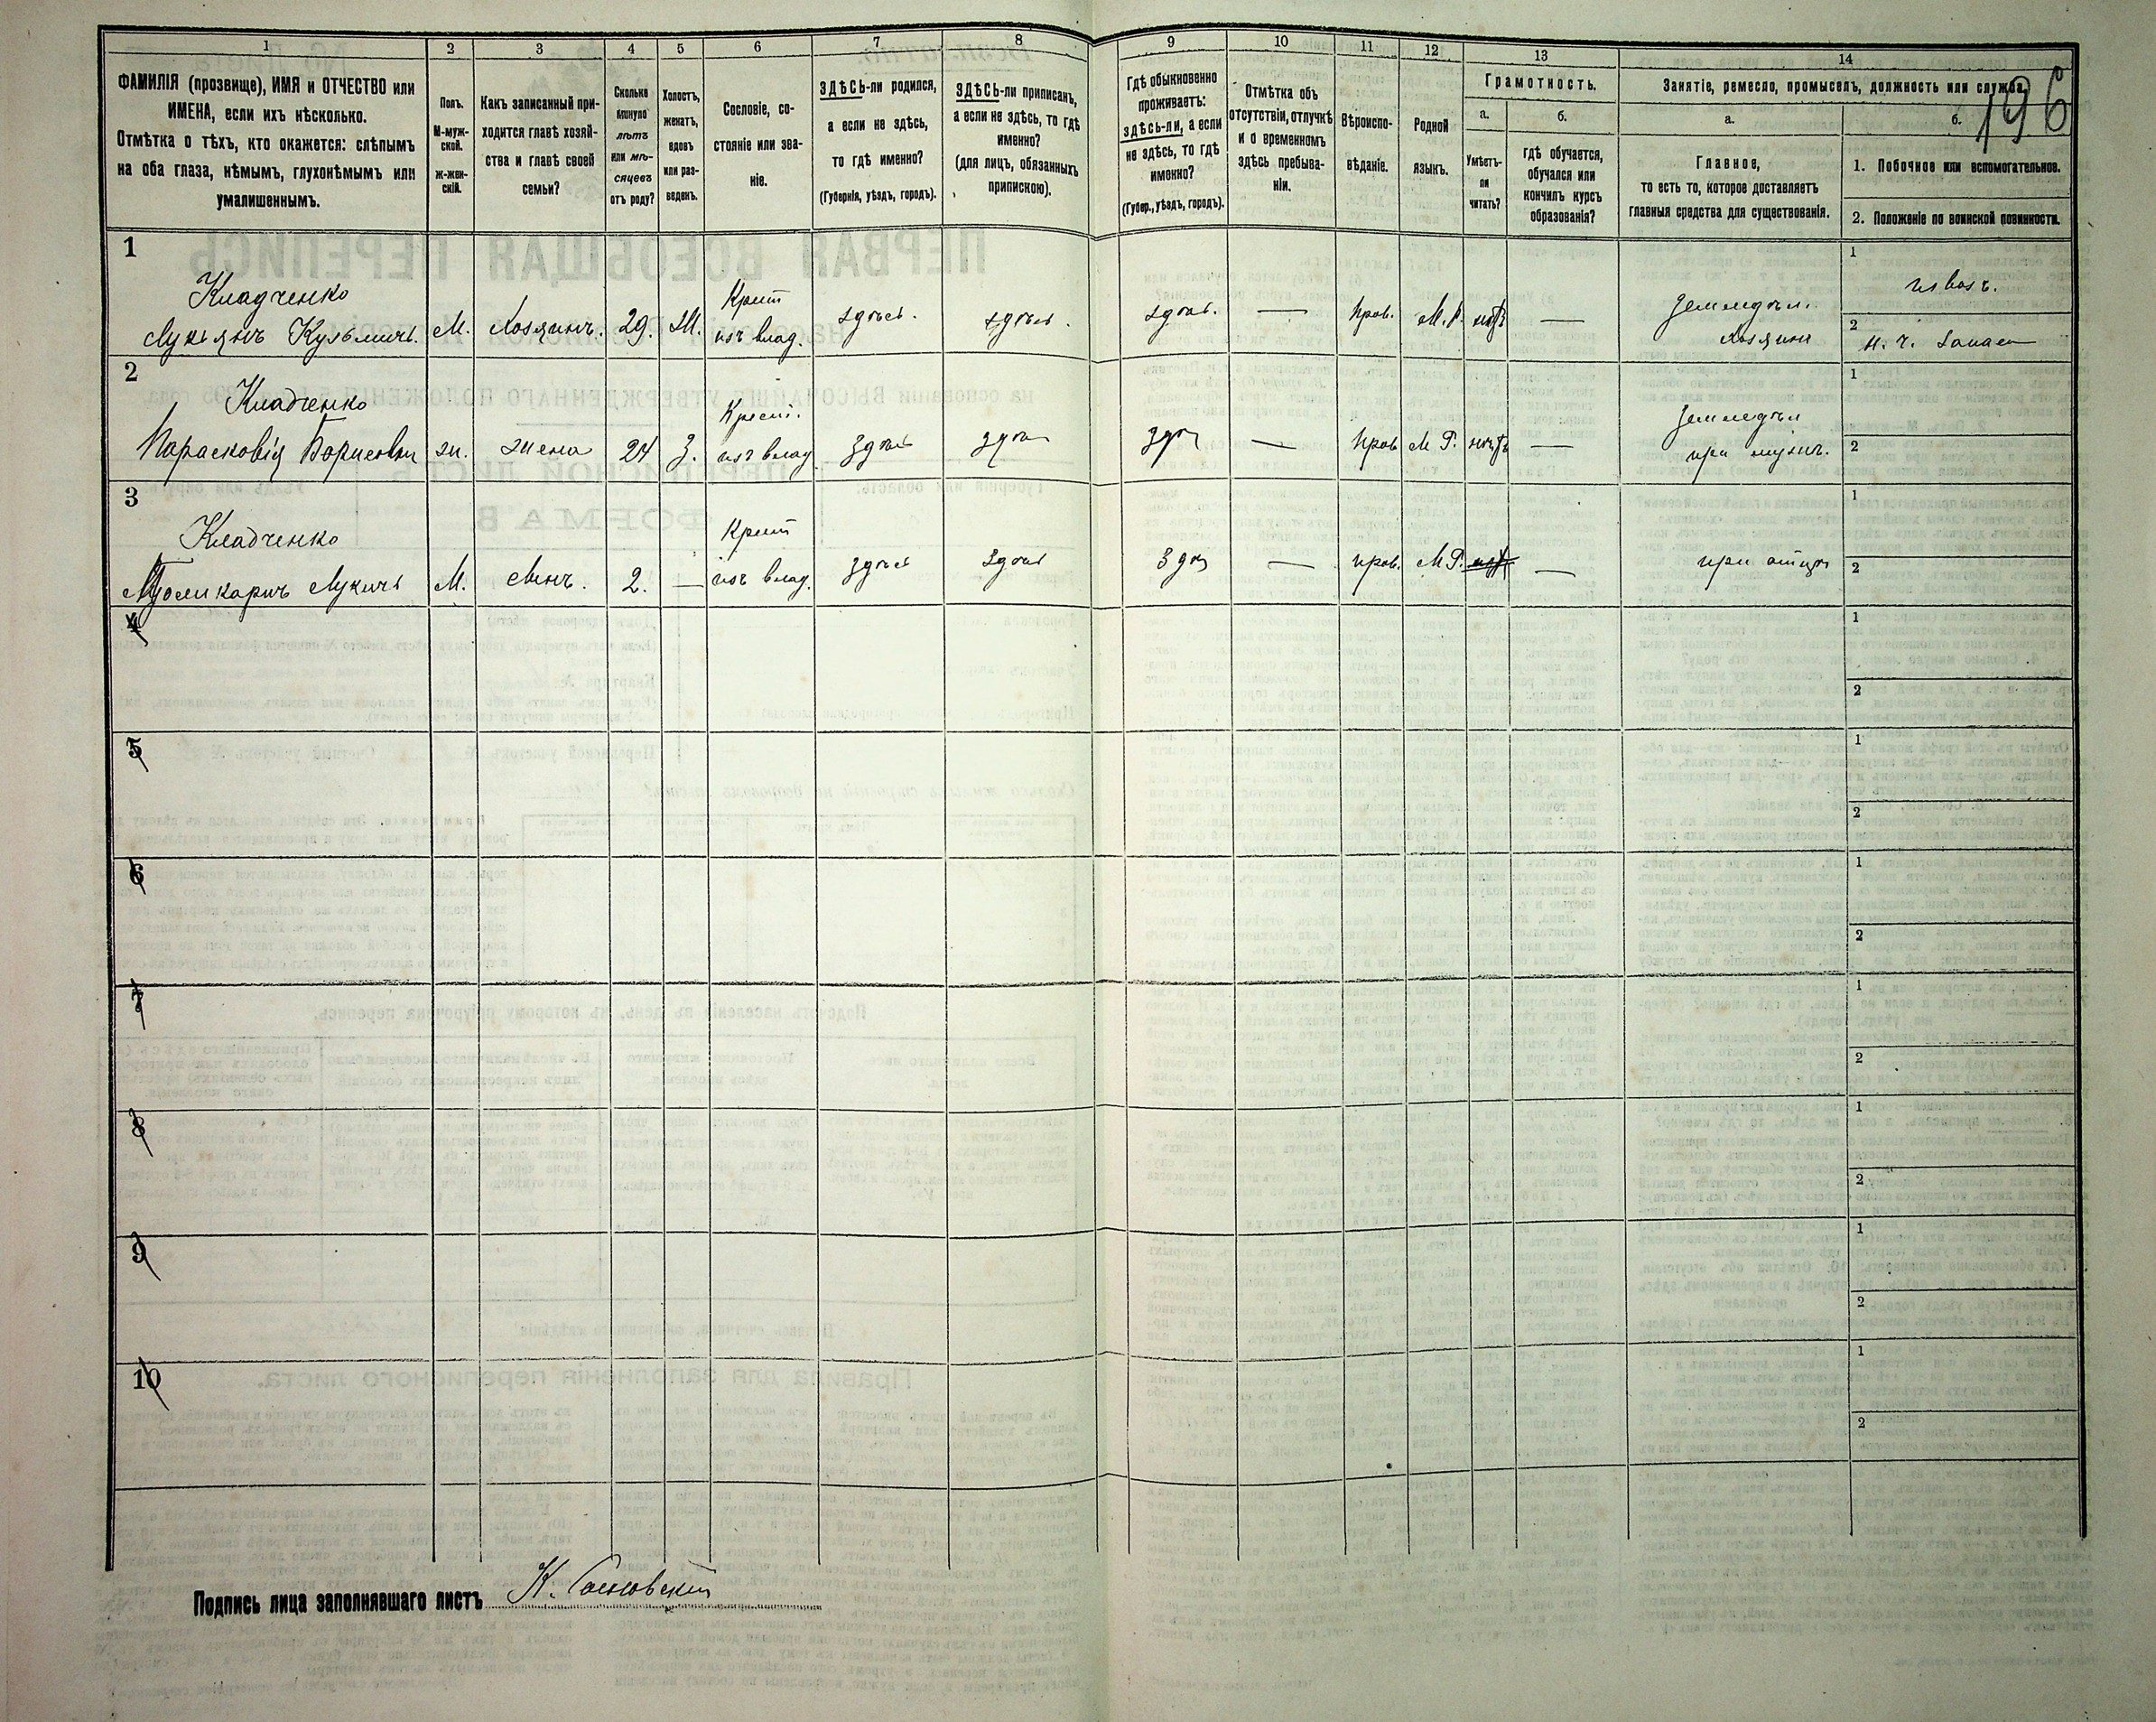 196
1
2
3
4
5
6
7
8
9
10
11
12
13
14
ФАМИЛІЯ (прозвище), ИМЯ и ОТЧЕСТВО или
ИМЕНА, если ихъ нѣсколько.
Отмѣтка о тѣхъ, кто окажется: слѣпымъ
на оба глаза, нѣмымъ, глухонѣмымъ или
умалишеннымъ.
Полъ.
М-муж-
ской.
ж-жен-
скій.
Какъ записанный при-
ходится главѣ хозяй-
ства и главѣ своей
семьи?
Сколько
минуло
лѣтъ
или мѣ-
сяцевъ
отъ роду?
Холостъ,
женатъ,
вдовъ
или раз-
веденъ.
Сословіе, со-
стояніе или зва-
ніе.
ЗДѢСЬ-ли родился,
а если не здѣсь,
то гдѣ именно?
(Губернія, уѣздъ, городъ).
ЗДѢСЬ-ли приписан,
а если не здѣсь, то гдѣ
именно?
(для лицъ, обязанныхъ
припискою).
Гдѣ обыкновенно
проживаетъ:
здѣсь-ли, а если
не здѣсь, то гдѣ
именно?
(Губер., уѣздъ, городъ).
Отмѣтка объ
отсутствіи, отлучкѣ
и о временномъ
здѣсь пребыва-
ніи.
Вѣроиспо-
вѣданіе.
Родной
языкъ.
Грамотность.
а.
б.
Умѣетъ-
ли
читать?
гдѣ обучается,
обучался или
кончилъ курсъ
образованія?
Занятіе, ремесло, промыселъ, должность или служба.
а.
б.
Главное,
то есть то, которое доставляетъ
главныя средства для существованія.
1. Побочное или вспомогательное.
2. Положеніе по воинской повинности.
1
Кладченко
Лукьянъ Кузьмичъ.
М.
Хозяинъ.
29.
Ж.
Крест
изъ влад.
здѣсь.
здѣсь.
здѣсь.
—
Прав.
М.Р.
нѣтъ
—
Земледѣл.
хозяинъ
1
извозъ.
2
2
Кладченко
Парасковія Борисовна
ж.
жена
24
З.
Крест.
изъ влад.
здѣсь
здѣсь
здѣсь
—
Прав
М Р.
нѣтъ
—
Земледѣл
при мужѣ.
1
2
3
Кладченко
Поликарпъ Лукичъ
М.
сынъ.
2.
—
Крест
изъ влад.
здѣсь
здѣсь
здѣсь
—
прав.
М Р.
нѣтъ
—
при отцѣ
1
2
4
1
2
5
1
2
6
1
2
7
1
2
8
1
2
9
1
2
10
1
2
Подпись лица заполнявшаго листъ